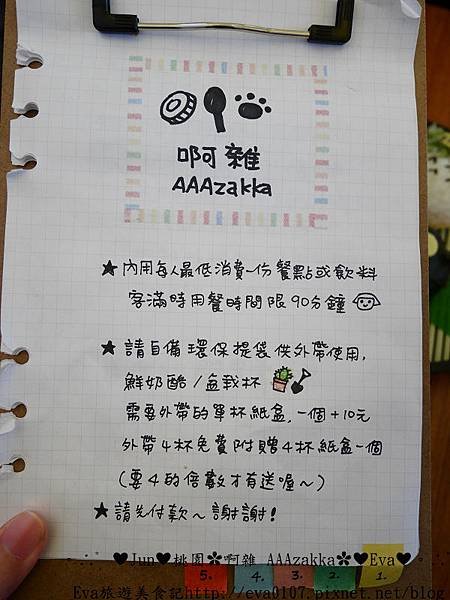 啊雜
AAAzakka
★ 內用每人最低消費一份餐點或飲料
客滿時用餐時間限90分鐘
★ 請自備環保提袋供外帶使用,
鮮奶酪/盆栽杯
需要外帶的單杯紙盒,一個+10元
外帶4杯免費附贈4杯紙盒一個
(要4的倍數才有送喔~)
★ 請先付款~謝謝!
♥Jun♥桃園✽啊雜 AAAzakka✽♥Eva♥
5. 4. 3. 2. 1.
Eva旅遊美食記http://eva0107.pixnet.net/blog